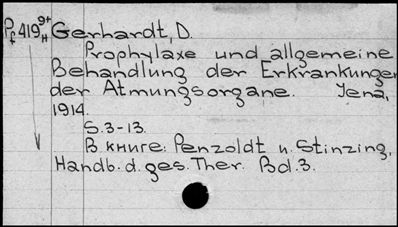 Pf 419 9+ н Gerhardt, D.
Prophylaxe und allgemeine
Behandlung der Erkrankungen
der Atmungsorgane. Jena,
1914.
S. 3-13.
В книге: Penzoldt u. Stinzing,
Handb. d. ges. Ther. Bd. 3.